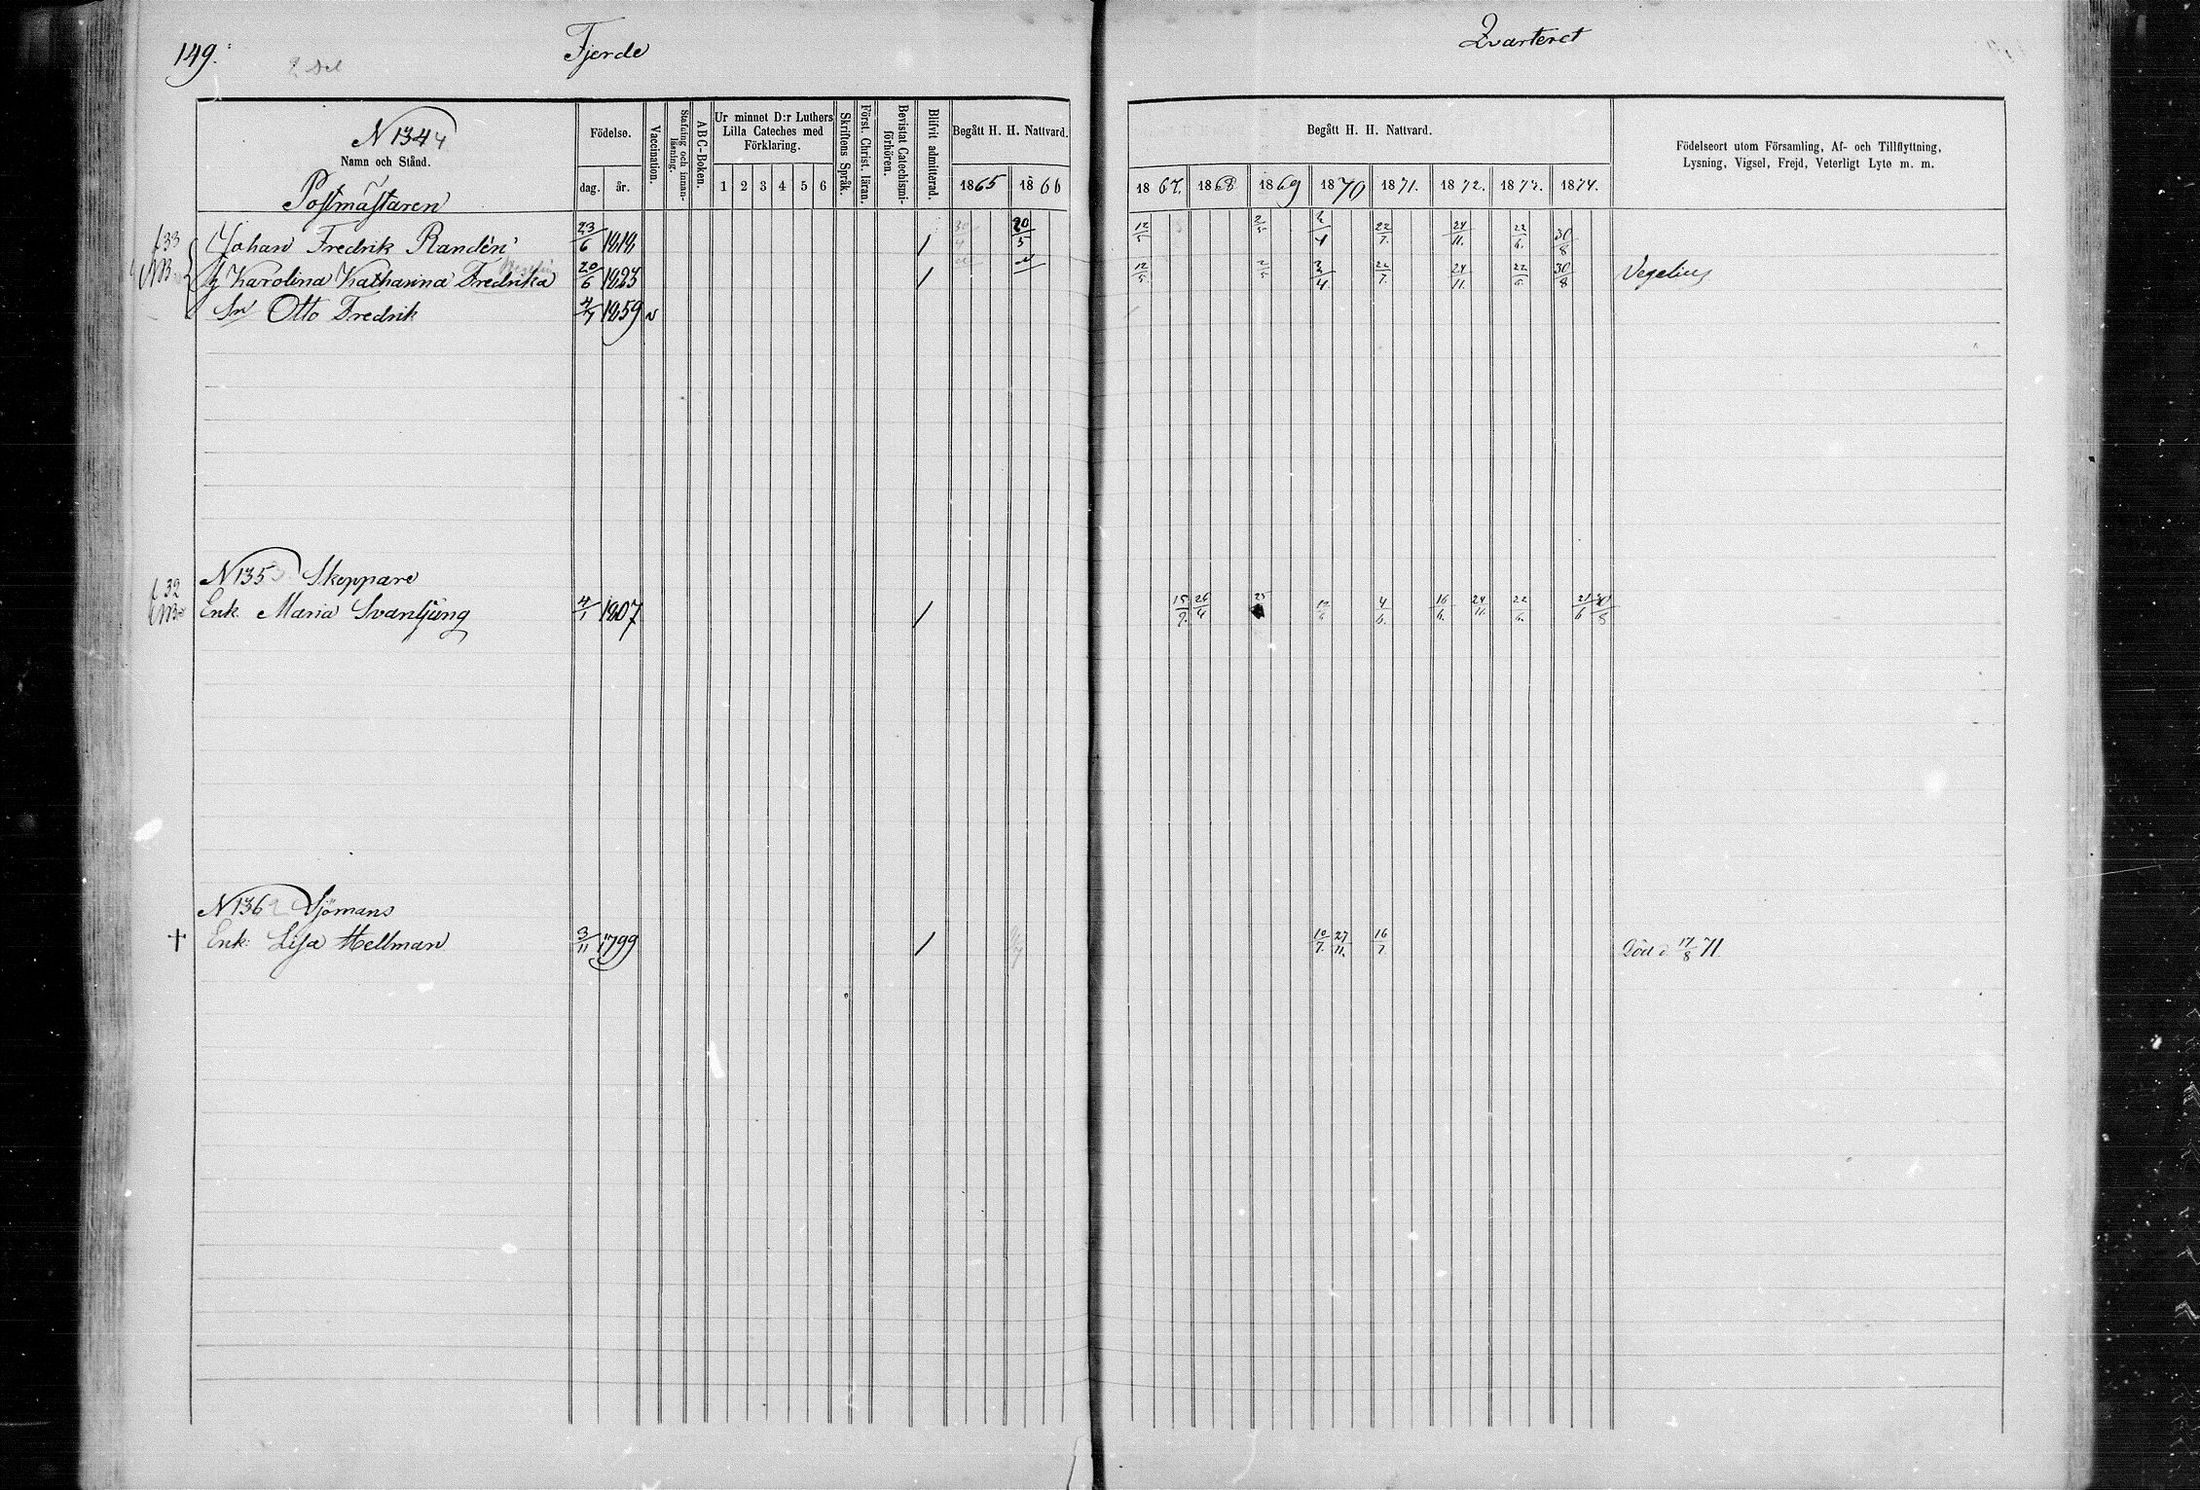 149.
Fjerde
Qvarteret
2 Del
N 134
Namn och Stånd.
Födelse.
dag. år.
Vaccination.
Stafning och innanläsning.
ABC-Boken.
Ur minnet D:r Luthers Lilla Cateches med Förklaring.
1 2 3 4 5 6
Skriftens Språk.
Först. Christ. läran.
Bevistat Catechismi-förhören.
Blifvit admitterad.
Begått H. H. Nattvard.
1865 1866
Begått H. H. Nattvard.
1867. 1868 1869 1870 1871. 1872. 1873. 1874.
Födelseort utom Församling, Af- och Tillflyttning,
Lysning, Vigsel, Frejd, Veterligt Lyte m. m.
Postmästaren
Johan Fredrik Randén 23/6 1818 / 20/5 12/5 2/5 3/4 22/7. 24/11. 22/6. 30/8
Karolina Katharina Fredrika 20/6 1823 / 12/5. 2/5 3/4. 22/7. 24/11. 22/6. 30/8 Vegelius
Sn Otto Fredrik 4/7 1859 v
N 135 Skeppare
Enk. Maria Svanljung 4/1 1807 / 15/9. 26/4 4/6. 16/6. 24/11 22/6. 21/6 30/8
N 136 Sjömans
† Enk: Lisa Hellman 3/11 1799 / 10/7. 27/11. 16/7. Död d. 17/8 71.